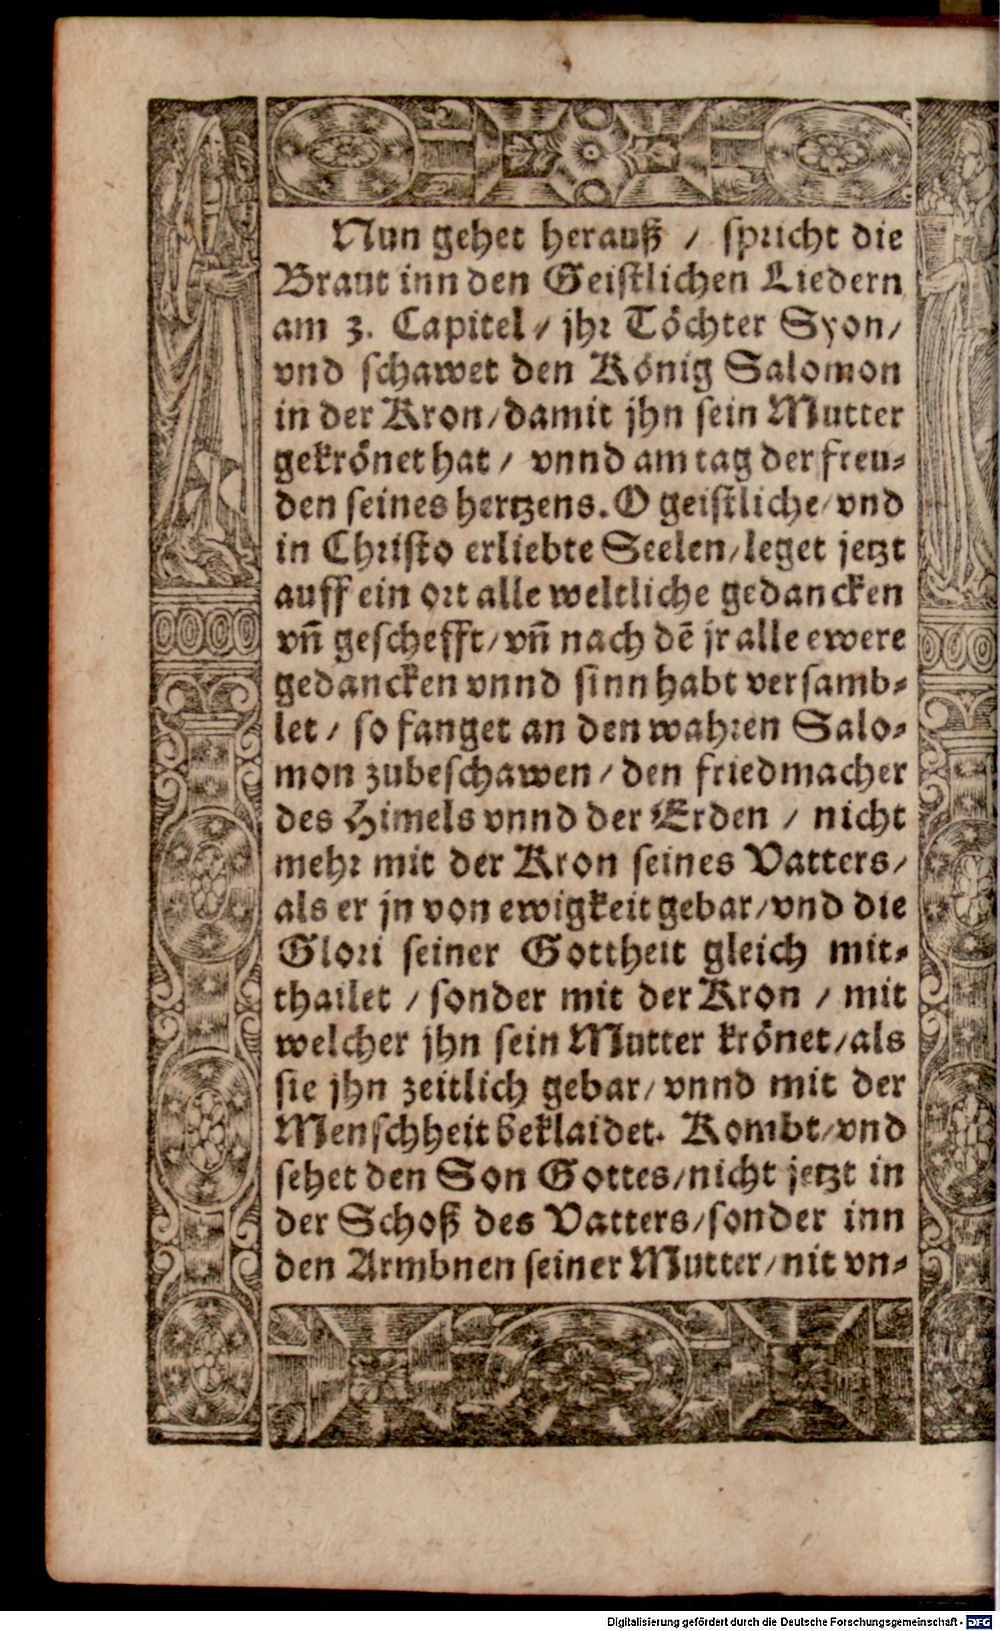 Nun gehet herauß / spricht die
Braut inn den Geistlichen Liedern
am 3. Capitel / jhr Töchter Syon /
vnd schawet den König Salomon
in der Kron / damit jhn sein Mutter
gekrönet hat / vnnd am tag der freu⸗
den seines hertzens. O geistliche / vnd
in Christo erliebte Seelen / leget jetzt
auff ein ort alle weltliche gedancken
vñ geschefft / vñ nach dē jr alle ewere
gedancken vnnd sinn habt versamb⸗
let / so fanget an den wahren Salo⸗
mon zubeschawen / den friedmacher
des Himels vnnd der Erden / nicht
mehr mit der Kron seines Vatters /
als er jn von ewigkeit gebar / vnd die
Glori seiner Gottheit gleich mit⸗
thailet / sonder mit der Kron / mit
welcher jhn sein Mutter krönet / als
sie jhn zeitlich gebar / vnnd mit der
Menschheit beklaidet. Kombt / vnd
sehet den Son Gottes / nicht jetzt in
der Schoß des Vatters / sonder inn
den Armbnen seiner Mutter / nit vn⸗
Digitalisierung gefördert durch die Deutsche Forschungsgemeinschaft - DFG